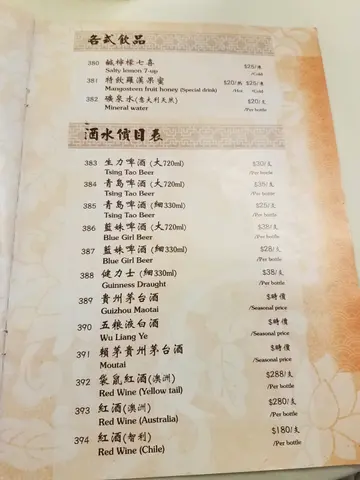 各式飲品
380 鹹檸檬七喜 $25/隻
Salty lemon 7-up /Cold
381 特飲羅漢果蜜 $20/熱 $25/凍
Mangosteen fruit honey (Special drink) /Hot /Cold
382 礦泉水(意大利天然) $20/支
Mineral water /Per bottle
酒水價目表
383 生力啤酒(大720ml) $30/支
Tsing Tao Beer /Per bottle
384 青島啤酒(大720ml) $38/支
Tsing Tao Beer /Per bottle
385 青島啤酒(細330ml) $25/支
Tsing Tao Beer /Per bottle
386 藍妹啤酒(大720ml) $38/支
Blue Girl Beer /Per bottle
387 藍妹啤酒(細330ml) $28/支
Blue Girl Beer /Per bottle
388 健力士(細330ml) $38/支
Guinness Draught /Per bottle
389 貴州茅台酒 $時價
Guizhou Maotai /Seasonal price
390 五粮液白酒 $時價
Wu Liang Ye /Seasonal price
391 賴茅貴州茅台酒 $時價
Moutai /Seasonal price
392 袋鼠紅酒(澳洲) $288/支
Red Wine (Yellow tail) /Per bottle
393 紅酒(澳洲) $280/支
Red Wine (Australia) /Per bottle
394 紅酒(智利) $180/支
Red Wine (Chile) /Per bottle